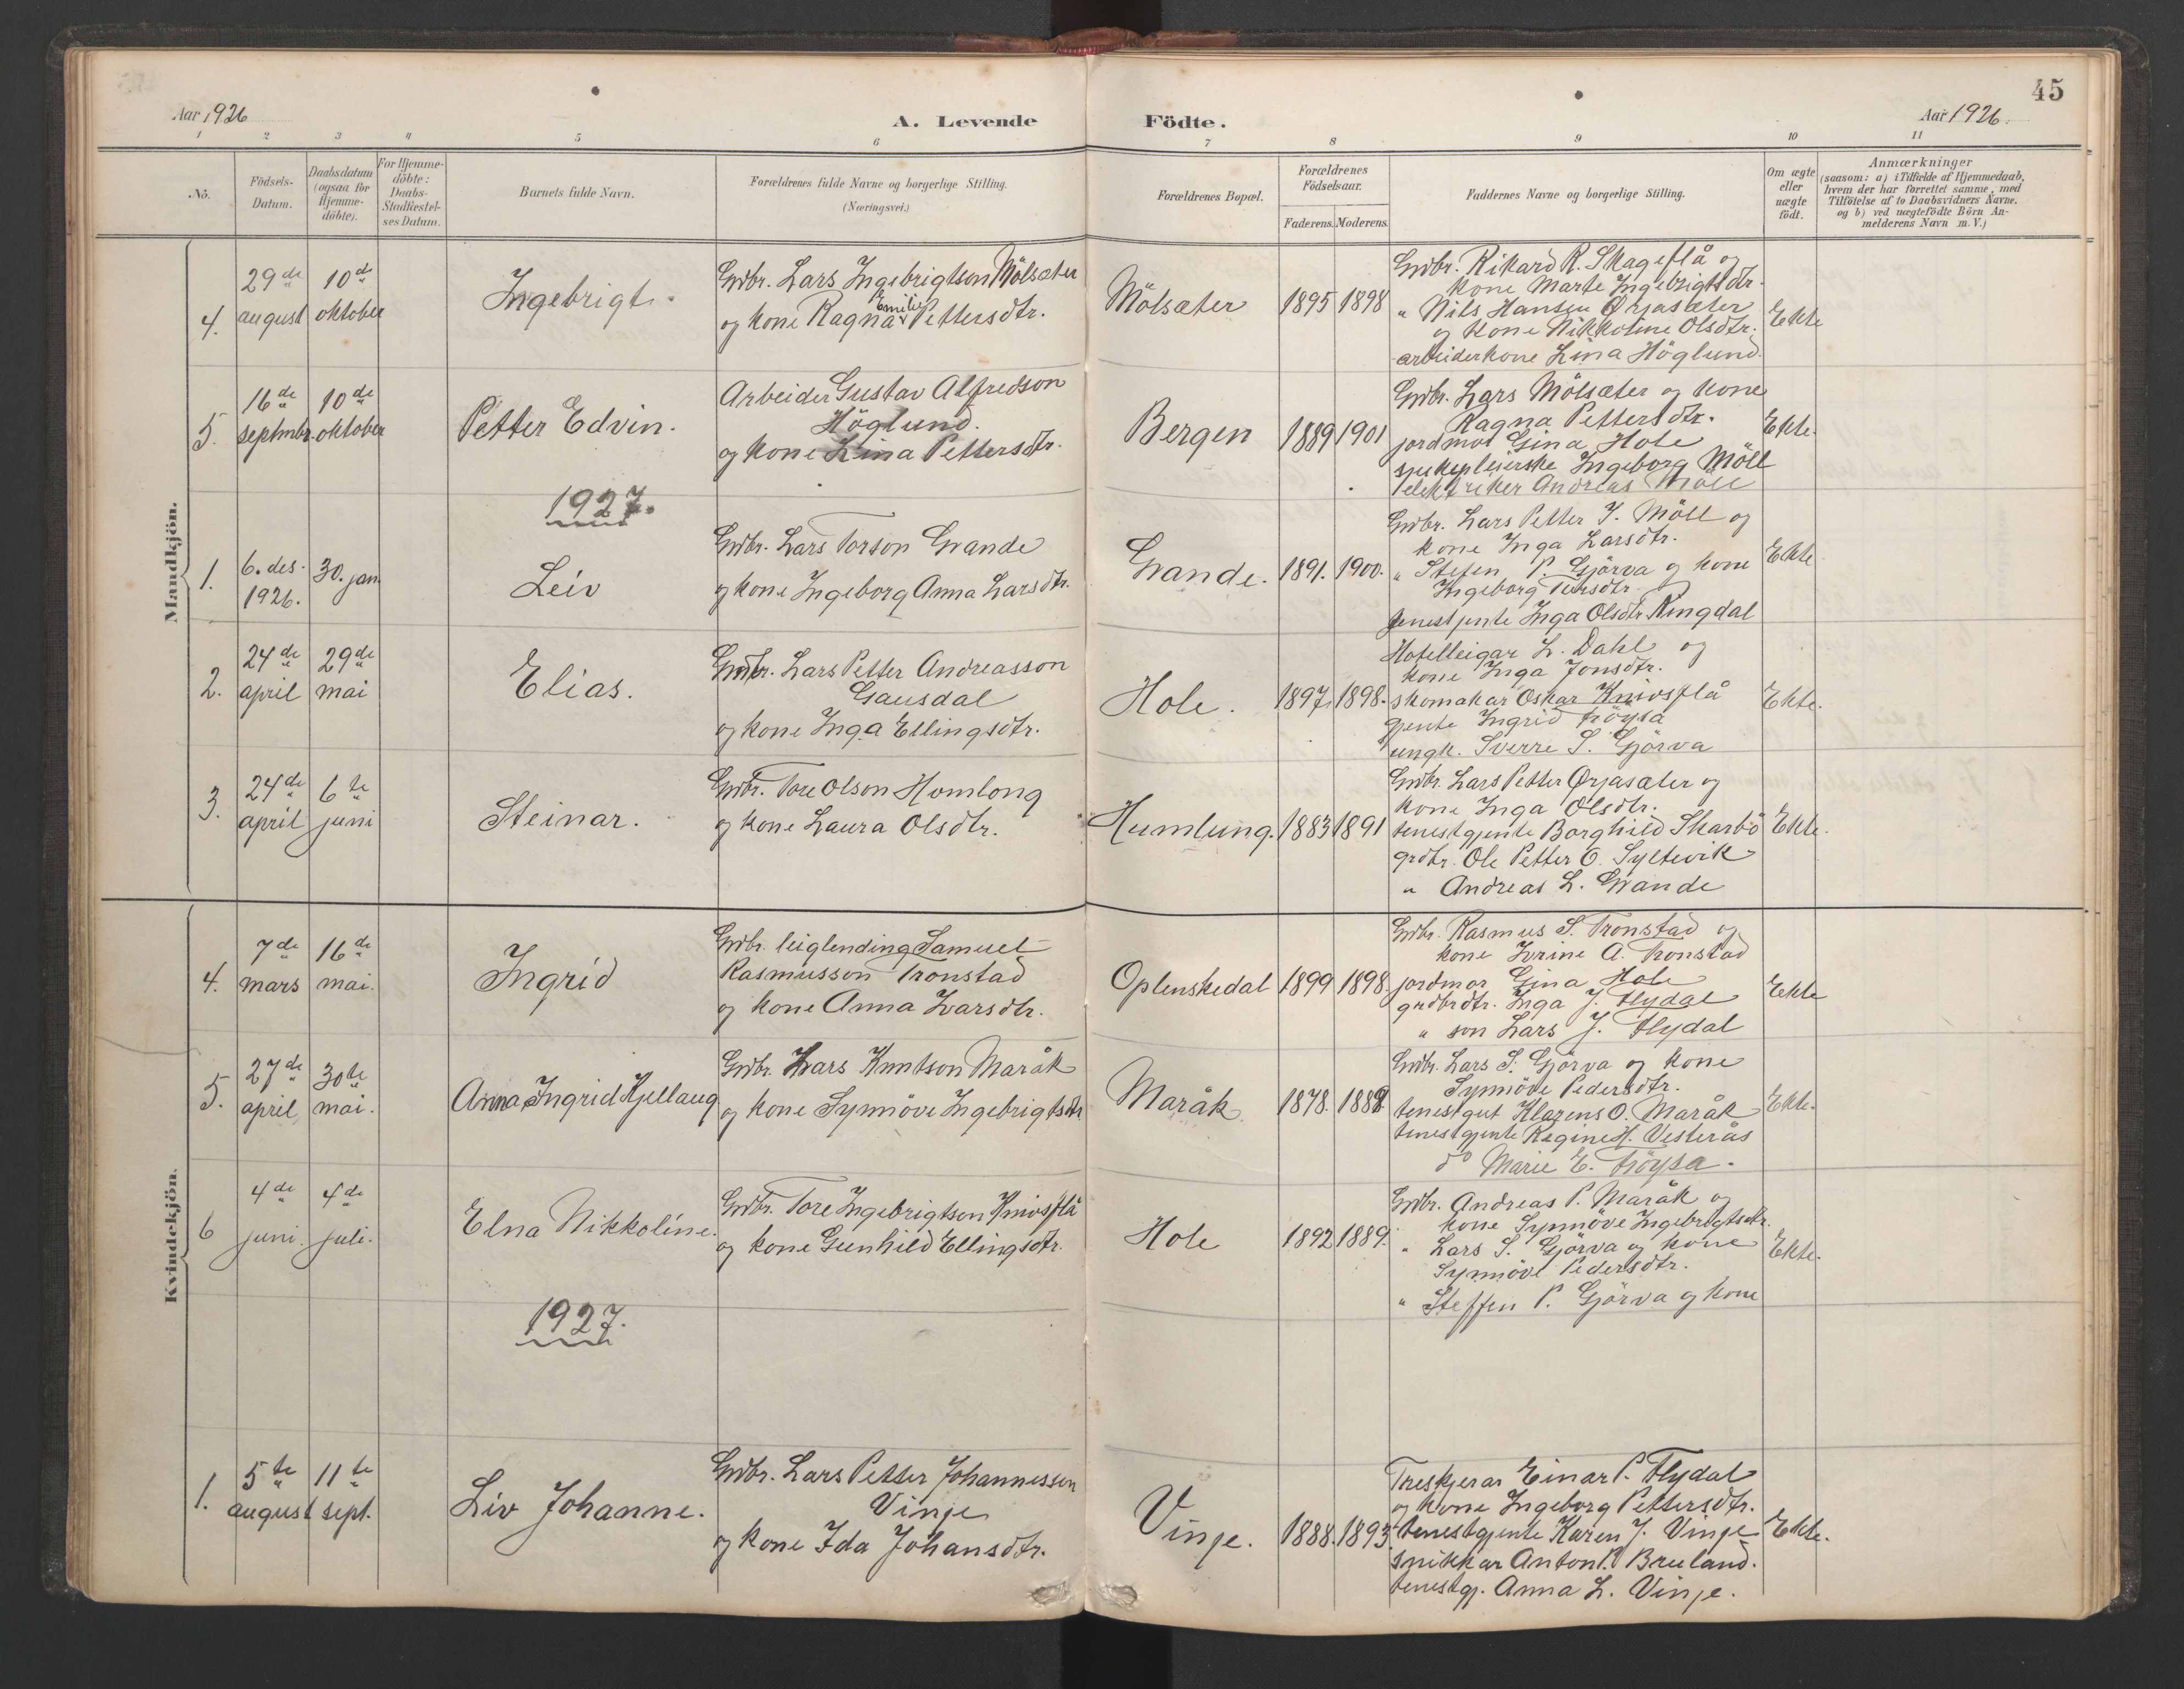 45
Aar 1926 A. Levende Födte. Aar 1926.
1 2 3 4 5 6 7 8 9 10 11
No. Födsels-Datum. Daabsdatum (ogsaa for Hjemme-döbte). For Hjemme-döbte: Daabs-Stadfæstel-ses Datum. Barnets fulde Navn. Forældrenes fulde Navne og borgerlige Stilling. (Næringsvei.) Forældrenes Bopæl. Forældrenes Födselsaar. Faderens. Moderens. Faddernes Navne og borgerlige Stilling. Om ægte eller uægte födt. Anmærkninger (saasom: a) i Tilfælde af Hjemmedaab, hvem der har forrettet samme, med Tilföielse af to Daabsvidners Navne. og b) ved uægtefödte Börn An-melderens Navn m. V.)
Mandkjön.
4. 29de august 10de oktober Ingebrigt.
Grdbr. Lars Ingebrigtson Mölsæter
og kone Ragna Emilie Pettersdtr.
Mölsæter 1895 1898
Grdbr. Rikard R. Skageflå og
kone Marte Ingebrigtsdtr.
" Nils Hansen Ørjasæter
og kone Nikkoline Olsdtr.
arbeiderkone Lina Höglund.
Ekte
5. 16de septmbr. 10de oktober Petter Edvin.
Arbeider Gustav Alfredson
Höglund.
og kone Lina Pettersdtr.
Bergen 1889 1901
Grdbr. Lars Mölsæter og kone
Ragna Pettersdtr.
jordmor Gina Hole
sjukepleierske Ingeborg Möll
elektriker Andreas Möll
Ekte.
1927.
1. 6. des. 1926. 30. jan. Leiv
Grdbr. Lars Torson Grande
og kone Ingeborg Anna Larsdtr.
Grande. 1891. 1900.
Grdbr. Lars Petter I. Möll og
kone Inga Larsdtr.
" Stefen P. Gjörva og kone
Ingeborg Torsdtr.
tenestjente Inga Olsdtr. Ringdal
Ekte
2. 24de april 29de mai Elias.
Grdbr. Lars Petter Andreasson
Gausdal
og kone Inga Ellingsdtr.
Hole. 1897. 1898.
Hotelleigar L. Dahl og
kone Inga Jonsdtr.
skomakar Oskar Knivsflå
gjente Ingrid Fröysa
ungk. Sverre S. Gjörva
Ekte.
3. 24de april 6te juni Steinar.
Grdbr. Tore Olson Homlong
og kone Laura Olsdtr.
Humlung. 1883 1891
Grdbr. Lars Petter Ørjasæter og
kone Inga Olsdtr.
tenestgjente Borghild Skarbö
grdbr. Ole Petter O. Syltevik
" Andreas L. Grande
Ekte.
Kvindekjön.
4. 7de mars 16de mai. Ingrid
Grdbr. leiglending Samuel
Rasmusson Tronstad
og kone Anna Ivarsdtr.
Oplenskedal 1899 1898.
Grdbr. Rasmus S. Tronstad og
kone Ivrine A. Tronstad
jordmor Gina Hole
grdbrdtr. Inga J. Flydal
" son Lars J. Flydal
Ekte
5. 27de april 30te mai. Anna Ingrid Kjellaug
Grdbr. Lars Knutson Maråk
og kone Synnöve Ingebrigtsdtr.
Maråk. 1878. 1889.
Grdbr. Lars S. Gjörva og kone
Synnöve Pedersdtr.
tenestgut Klarens O. Maråk
tenestgjente Regine H. Vesterås
do Marie E. Fröysa.
Ekte.
6 4de juni. 4de juli. Elna Nikkoline.
Grdbr. Tore Ingebrigtson Knivsflå
og kone Gunhild Ellingsdtr.
Hole 1892 1889.
Grdbr. Andreas P. Maråk og
kone Synnöve Ingebrigtsdtr.
" Lars S. Gjörva og kone
Synnöve Pedersdtr.
" Steffen P. Gjörva og kone
Ekte.
1927.
1. 5te august 11te sept. Liv Johanne.
Grdbr. Lars Petter Johannessen
Vinje
og kone Ida Johansdtr.
Vinje. 1888. 1893.
Treskjerar Einar P. Flydal
og kone Ingeborg Pettersdtr.
tenestgjente Karen J. Vinje
snikkar Anton P. Bruland.
tenestgj. Anna L. Vinje.
Ekte.